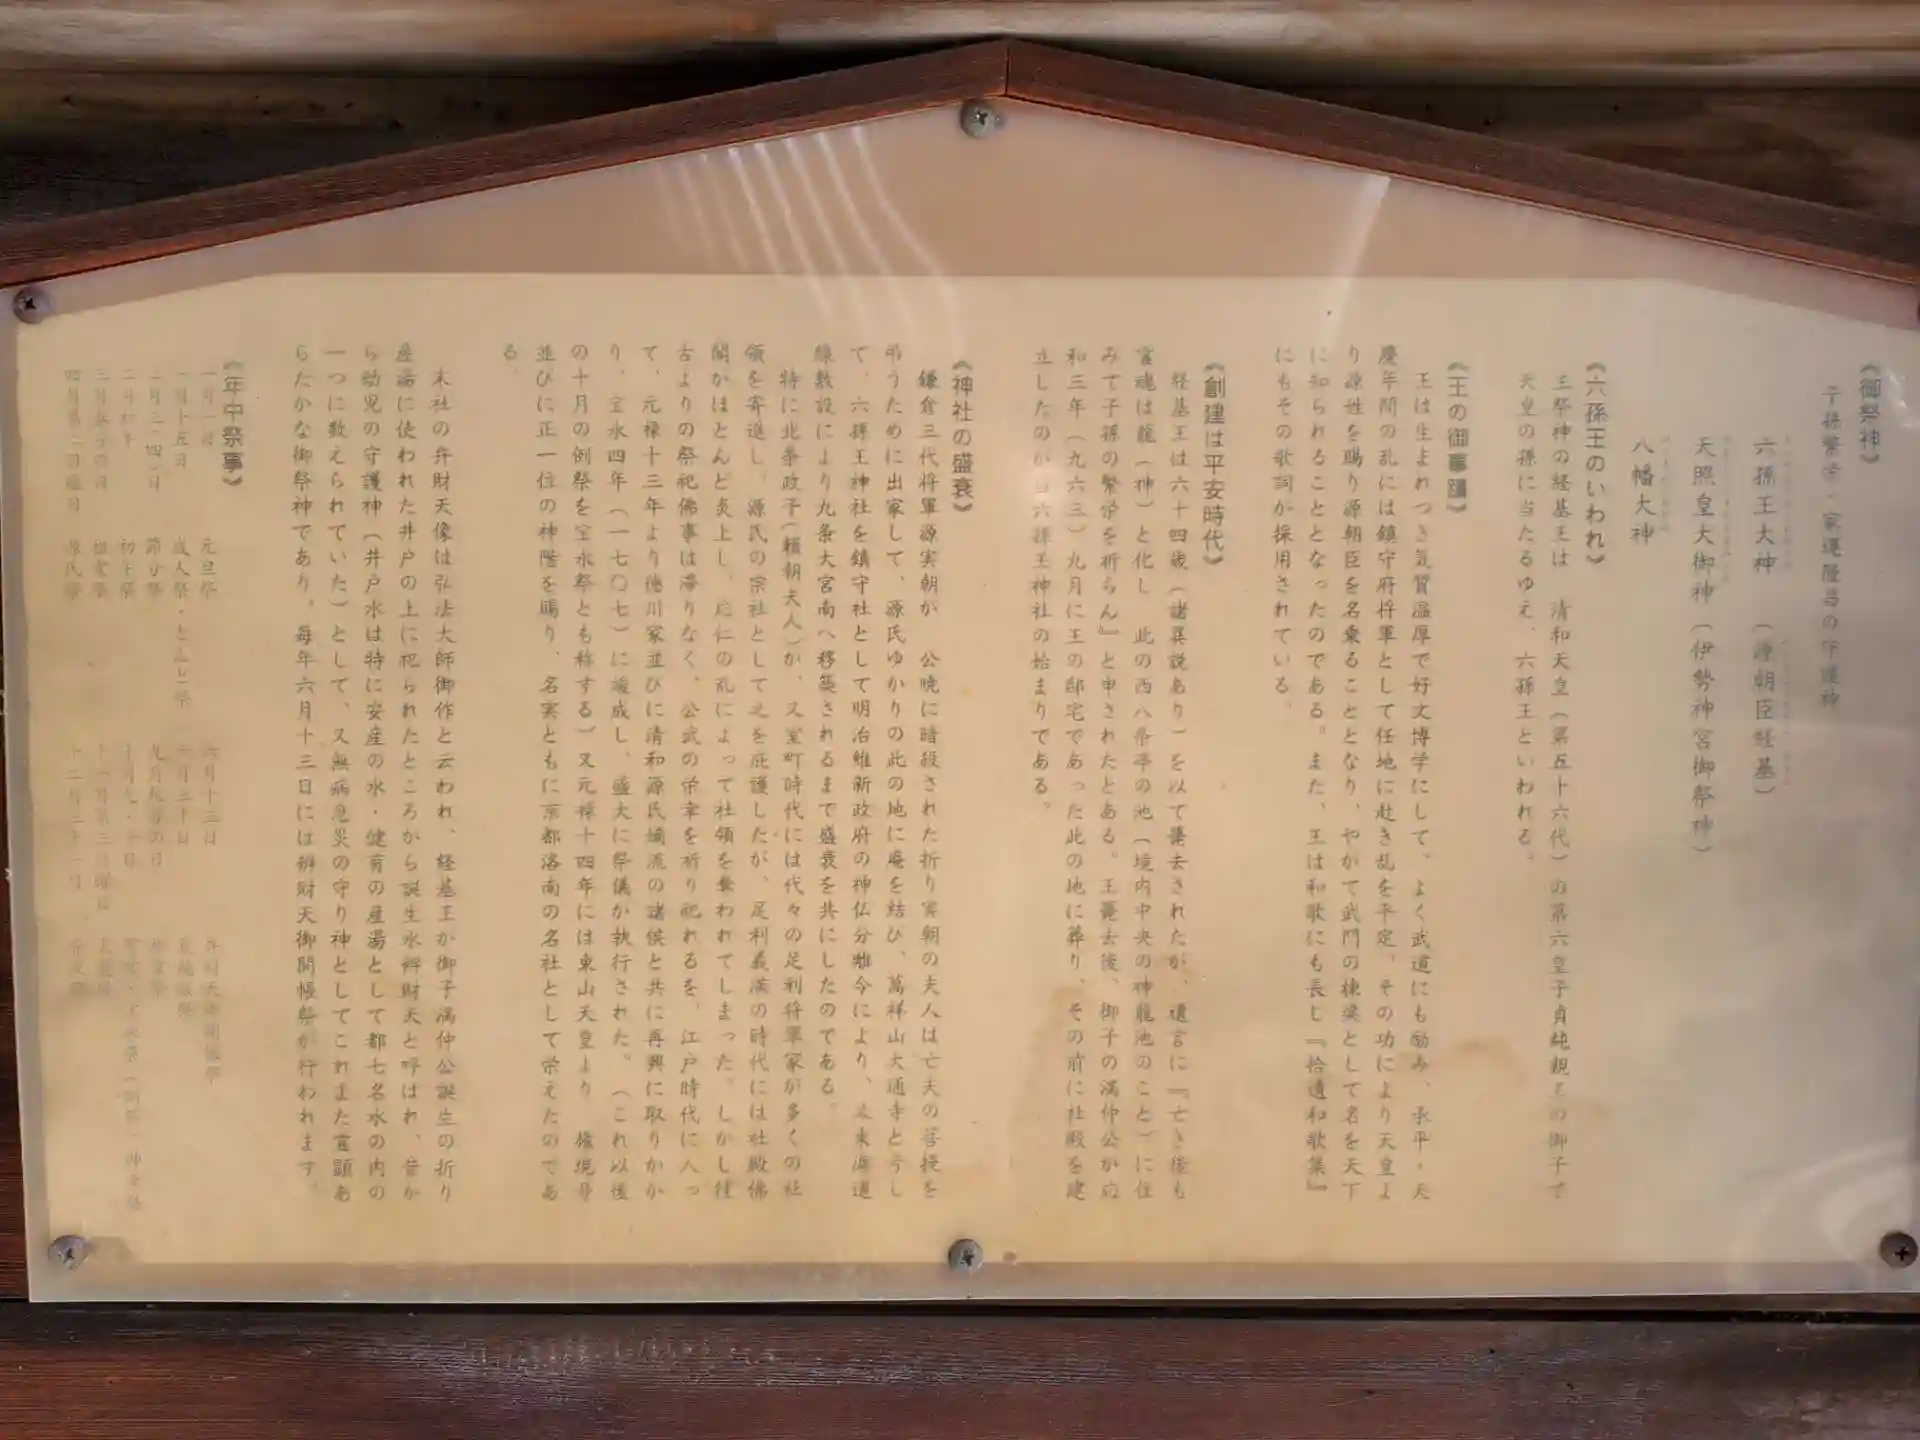 《御祭神》
子孫繁栄・家運隆昌の守護神
六孫王大神 (源朝臣経基)
天照皇大御神(伊勢神宮御祭神)
八幡大神
《六孫王のいわれ》
主祭神の経基王は 清和天皇(第五十六代)の第六皇子貞純親王の御子で
天皇の孫に当たるゆえ、六孫王といわれる。
《王の御事蹟》
王は生まれつき気質温厚で好文博学にして、よく武道にも励み、承平・天
慶年間の乱には鎮守府将軍として任地に赴き乱を平定、その功により天皇よ
り源姓を賜り源朝臣を名乗ることとなり、やがて武門の棟梁として名を天下
に知られることとなったのである。また、王は和歌にも長じ『拾遺和歌集』
にもその歌詞が採用されている。
《創建は平安時代》
経基王は六十四歳(諸異説あり)を以て薨去されたが、遺言に『亡き後も
霊魂は龍(神)と化し 此の西八条亭の池(境内中央の神龍池のこと)に住
みて子孫の繁栄を祈らん』と申されたとある。王薨去後、御子の満仲公が応
和三年(九六三)九月に王の邸宅であった此の地に葬り、その前に社殿を建
立したのが当六孫王神社の始まりである。
《神社の盛衰》
鎌倉三代将軍源実朝が 公暁に暗殺された折り実朝の夫人は亡夫の菩提を
弔うために出家して、源氏ゆかりの此の地に庵を結び、萬祥山大通寺と号し
て、六孫王神社を鎮守社として明治維新政府の神仏分離令により、又東海道
線敷設により九条大宮南へ移築されるまで盛衰を共にしたのである。
特に北条政子(頼朝夫人)が、又室町時代には代々の足利将軍家が多くの社
領を寄進し、源氏の宗社として之を庇護したが、足利義満の時代には社殿佛
閣がほとんど炎上し、応仁の乱によって社領を奪われてしまった。しかし往
古よりの祭祀佛事は滞りなく、公武の栄幸を祈り祀れるを、江戸時代に入っ
て、元禄十三年より徳川家並びに清和源氏嫡流の諸侯と共に再興に取りかか
り、宝永四年(一七〇七)に竣成し、盛大に祭儀が執行された。(これ以後
の十月の例祭を宝永祭とも称する)又元禄十四年には東山天皇より 権現号
並びに正一位の神階を賜り、名実ともに京都洛南の名社として栄えたのであ
る。
末社の弁財天像は弘法大師御作と云われ、経基王が御子満仲公誕生の折り
産湯に使われた井戸の上に祀られたところから誕生水辨財天と呼ばれ、昔か
ら幼児の守護神(井戸水は特に安産の水・健育の産湯として都七名水の内の
一つに数えられていた)として、又無病息災の守り神としてこれまた霊顕あ
らたかな御祭神であり、毎年六月十三日には辨財天御開帳祭が行われます。
《年中祭事》
一月一日 元旦祭 六月十三日 弁財天御開帳祭
一月十五日 成人祭・とんど祭 六月三十日
二月三(四)日 節分祭 九月
二月初午 初午祭 十月九・十日
三月春分の日 祖霊祭 十一月第三日曜日
四月第二日曜日 源氏祭 十二月三十一日